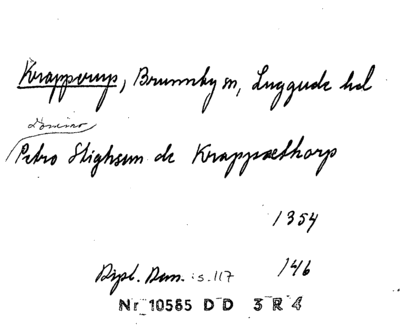 Krapperup, Brunnby sn, Luggude hd
Domino
Petro Stighsun de Krappæthorp
1354
Dipl. Dan. :s.117 146
Nr 10585 DD 3R4